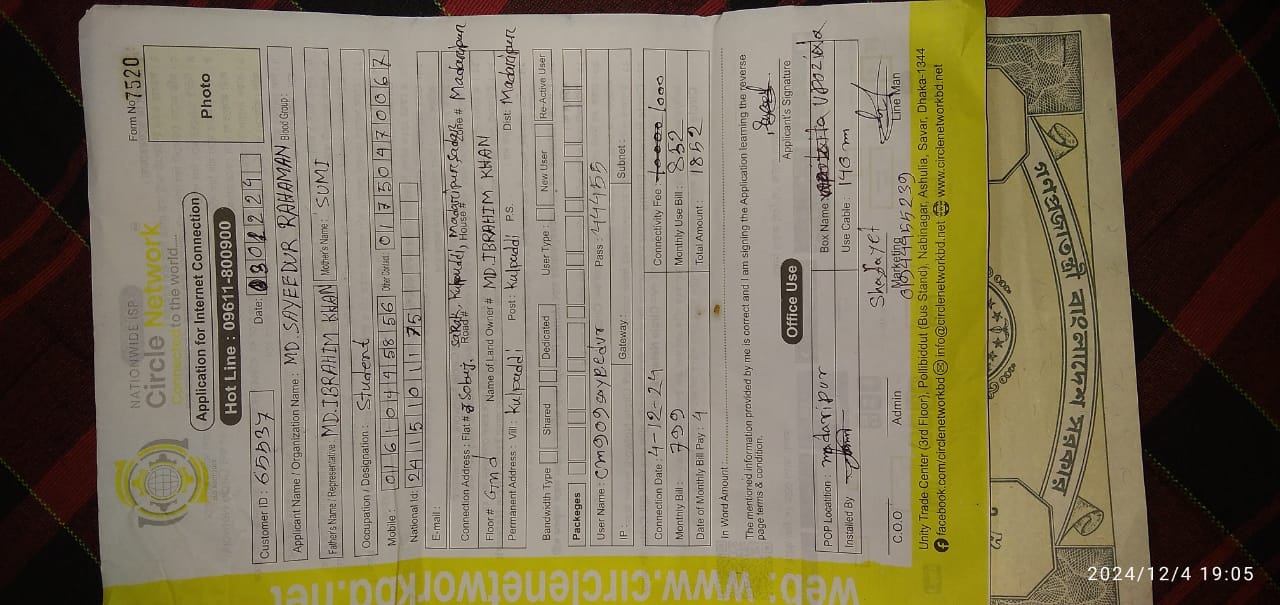 NATIONWIDE ISP
Circle Network
Connected to the world....
Form No 7520
Photo
Application for Internet Connection
Hot Line : 09611-800900
Customer ID : 65537
Date:
Applicant Name / Organization Name : MD. SAYEEDUR RAHAMAN Blood Group :
Father's Name / Representative : MD. IBRAHIM KHAN Mother's Name : SUMI
Occupation / Designation : Student
Mobile : 01610445856 Other Contact : 01750470067
National Id : 2415101175
E-mail :
Connection Address : Flat # Sobuj, Road # Kulpaddi, House # Madaripur Sadar Zone # Madaripur
Floor # Gnd Name of Land Owner # MD. IBRAHIM KHAN
Permanent Address : Vill : Kulpaddi Post : Kulpaddi P.S. Dist. Madaripur
Bandwidth Type Shared Dedicated User Type : New User Re-Active User
Packeges
User Name : Pass : 44455
IP : Gateway : Subnet :
Connection Date : 4-12-24 Connectivity Fee 1000
Monthly Bill : 799 Monthly Use Bill : 852
Date of Monthly Bill Pay : 4 Total Amount : 1852
In Word Amount
The mentioned information provided by me is correct and I am signing the Application learning the reverse
page terms & condition.
Applicant's Signature
Office Use
POP Location : madaripur Box Name Upozida
Installed By Use Cable : 140 m
C.O.O Admin Marketing Line Man
Unity Trade Center (3rd Floor), Pollibiddut (Bus Stand), Nabinagar, Ashulia, Savar, Dhaka-1344
facebook.com/circlenetworkbd info@circlenetworkbd.net www.circlenetworkbd.net
web: www.circlenetworkbd.net
গনপ্রজাতন্ত্রী বাংলাদেশ সরকার
2024/12/4 19:05